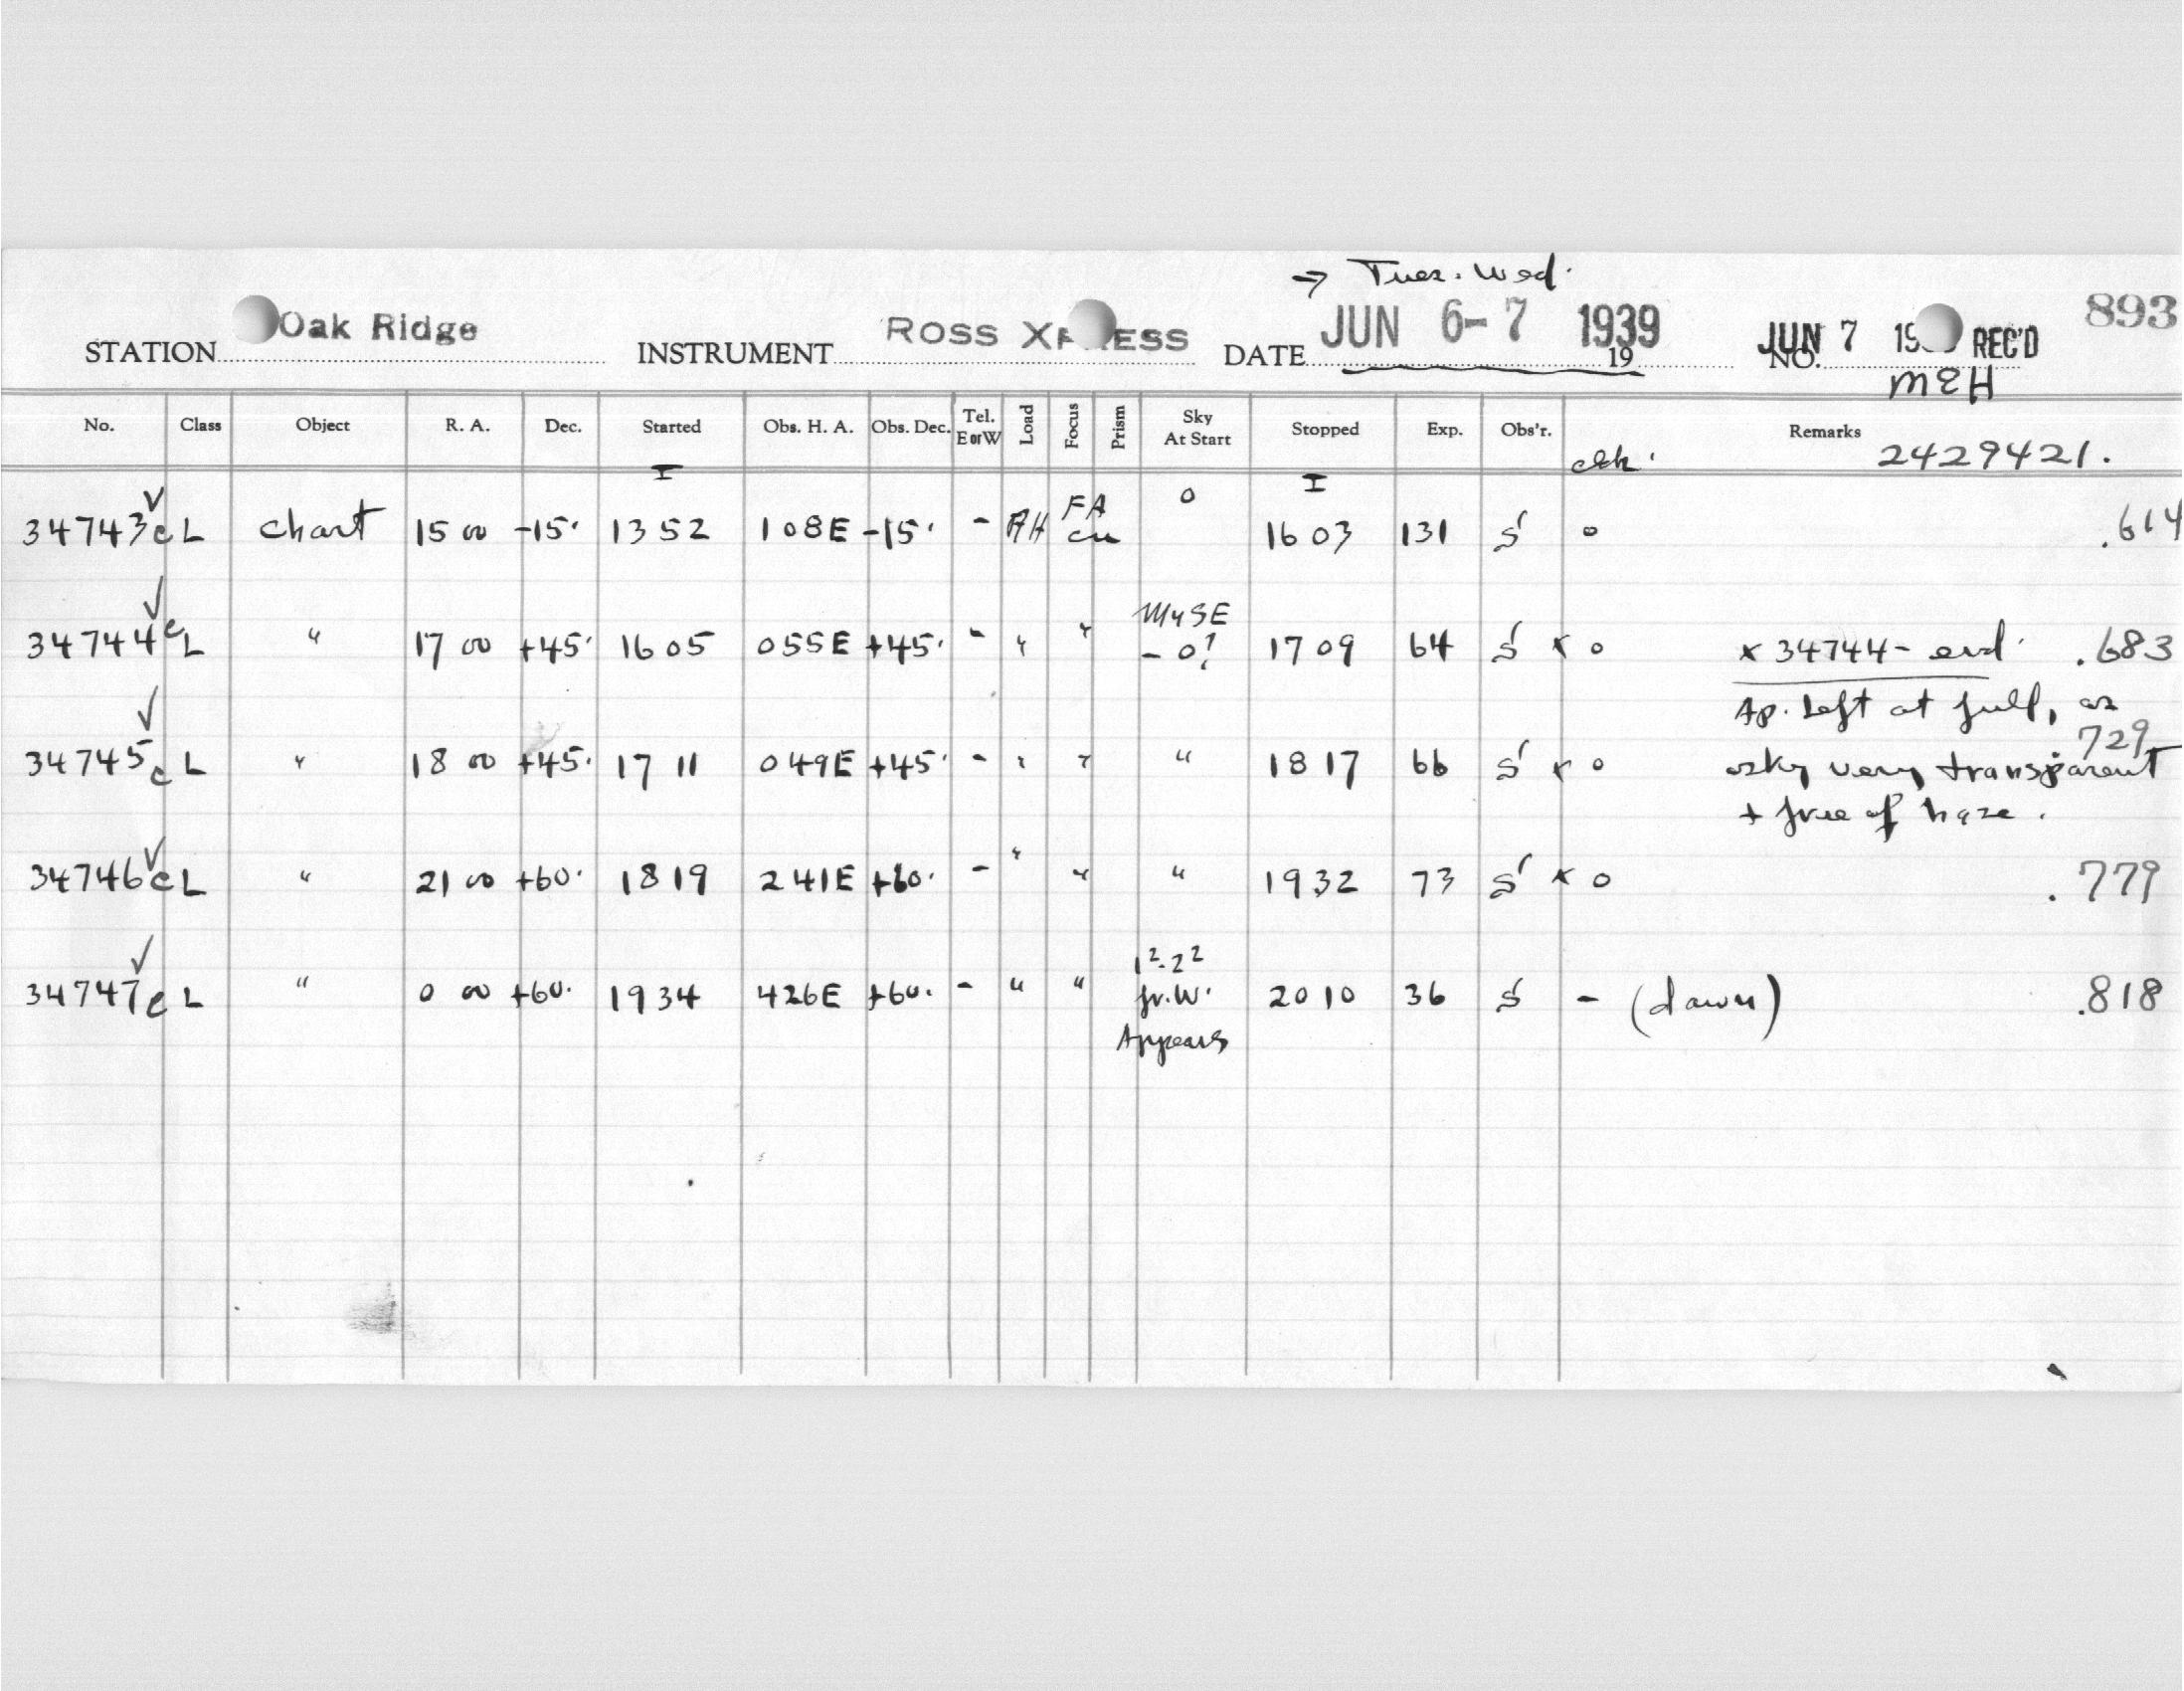 → Tues. Wed.
STATION Oak Ridge INSTRUMENT ROSS XPRESS DATE JUN 6-7 1939 19 JUN 7 19 REC'D NO. 893
MEH
No. Class Object R. A. Dec. Started Obs. H. A. Obs. Dec. Tel. E or W Load Focus Prism Sky At Start Stopped Exp. Obs'r. clk. Remarks 2429421.
I I
34743c L chart 15 00 -15· 13 52 108E -15· - AH FA cu o 16 03 131 S' o .614
34744c L " 17 00 +45· 16 05 055E +45· - " " - o? 17 09 64 S' x o x 34744- end· .683
Ap. left at full, as
34745c L " 18 00 +45· 17 11 049E +45· - " " " 18 17 66 S' x o .729
sky very transparent
+ free of haze.
34746c L " 21 00 +60· 18 19 241E +60· - " " " 19 32 73 S' x o .779
34747c L " 0 00 +60· 19 34 426E +60· - " " 1²-2² fr. W. Appears 20 10 36 S' - (dawn) .818